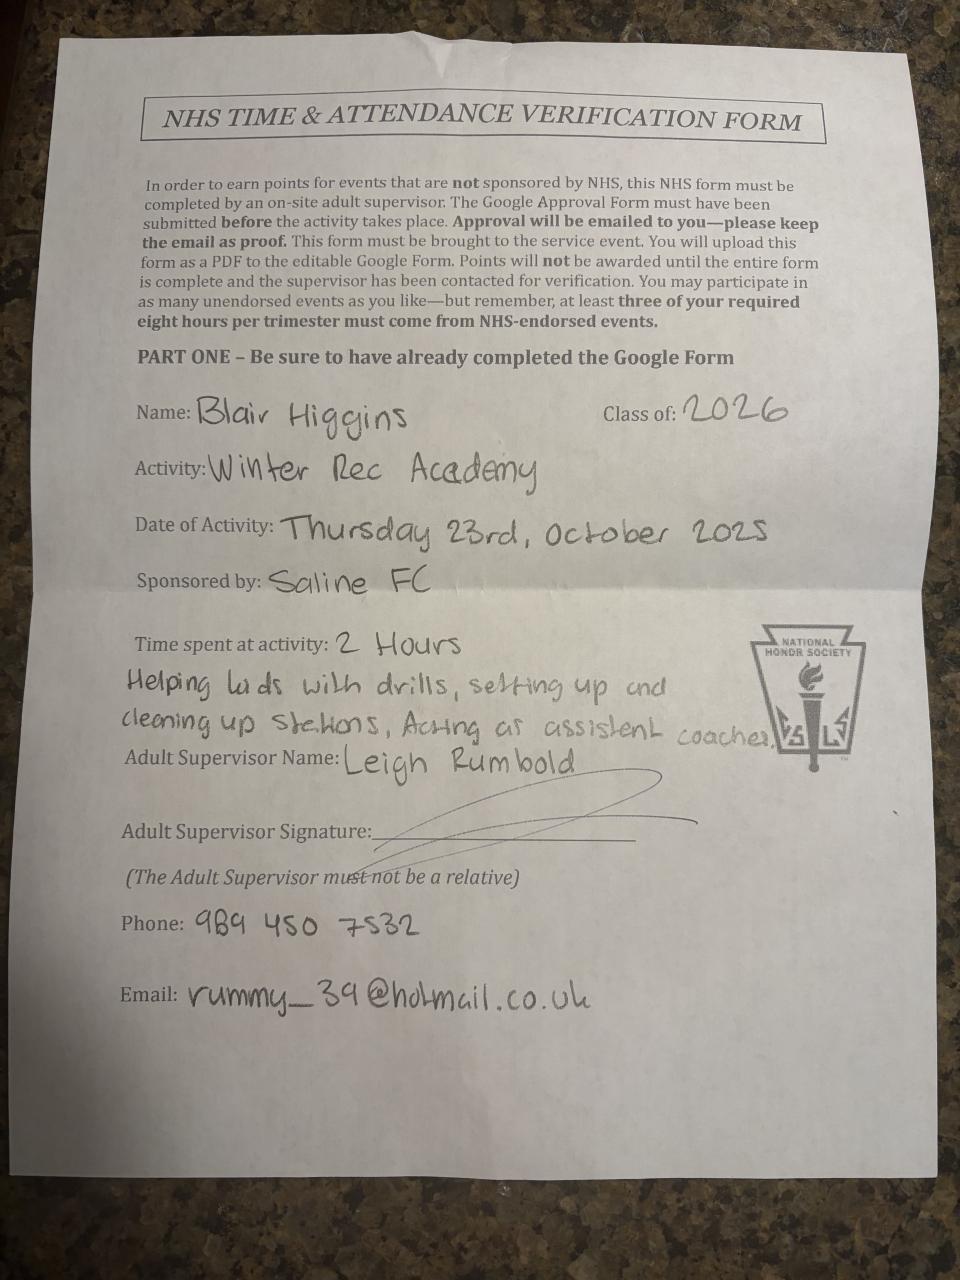 NHS TIME & ATTENDANCE VERIFICATION FORM
In order to earn points for events that are not sponsored by NHS, this NHS form must be
completed by an on-site adult supervisor. The Google Approval Form must have been
submitted before the activity takes place. Approval will be emailed to you—please keep
the email as proof. This form must be brought to the service event. You will upload this
form as a PDF to the editable Google Form. Points will not be awarded until the entire form
is complete and the supervisor has been contacted for verification. You may participate in
as many unendorsed events as you like—but remember, at least three of your required
eight hours per trimester must come from NHS-endorsed events.
PART ONE – Be sure to have already completed the Google Form
Name: Blair Higgins Class of: 2026
Activity: Winter Rec Academy
Date of Activity: Thursday 23rd, October 2025
Sponsored by: Saline FC
Time spent at activity: 2 Hours
NATIONAL
HONOR SOCIETY
Helping kids with drills, setting up and
cleaning up stations, Acting as assistent coaches.
S L S
TM
Adult Supervisor Name: Leigh Rumbold
Adult Supervisor Signature:
(The Adult Supervisor must not be a relative)
Phone: 989 450 7532
Email: rummy_39@hotmail.co.uk